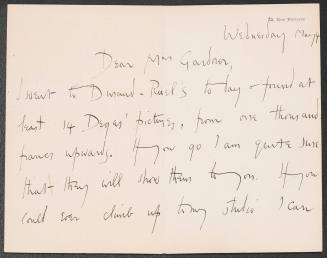 Wednesday May 4
Dear Mrs Gardner,
I went to Durand-Ruel's to day & found at
least 14 Degas' pictures, from one thousand
francs upwards. If you go I am quite sure
that they will show them to you. If you
could ever climb up to my studio I can